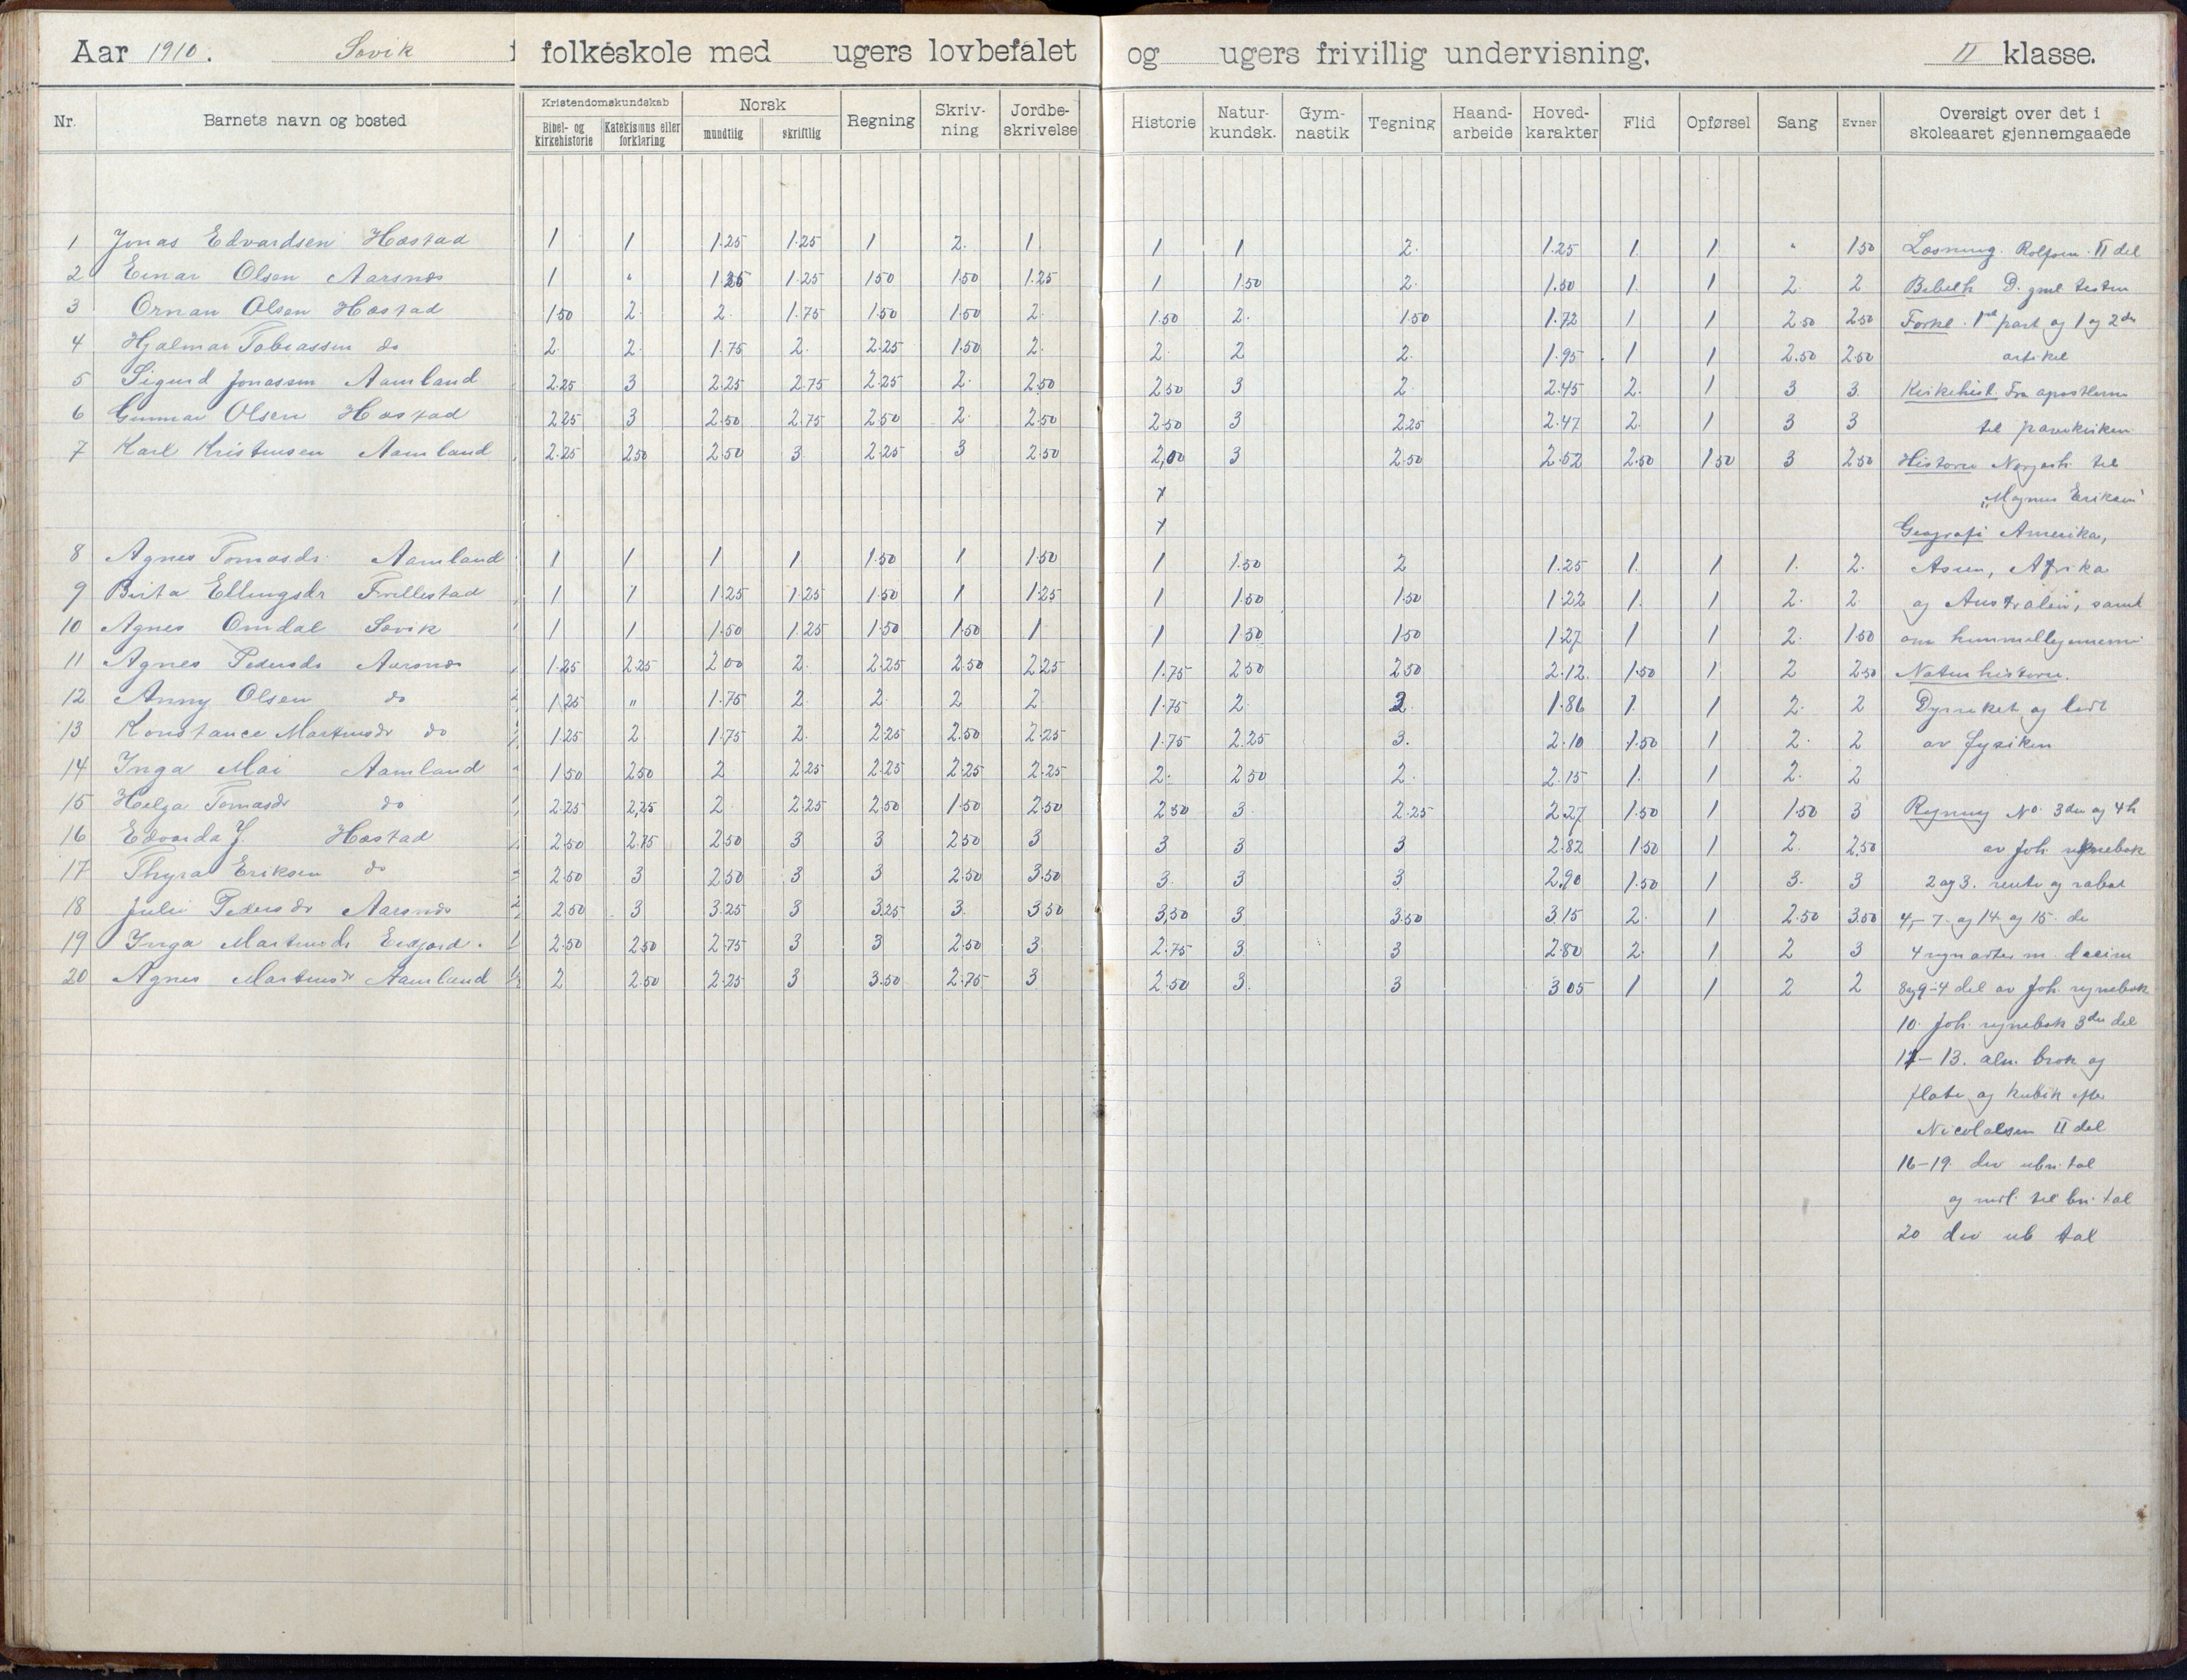 Aar 1910. Søvik folkeskole med ugers lovbefalet og ugers frivillig undervisning, II klasse.
Nr. Barnets navn og bosted Kristendomskundskab Bibel- og kirkehistorie Katekismus eller forklaring Norsk mundtlig skriftlig Regning Skriv-ning Jordbe-skrivelse Historie Natur-kundsk. Gym-nastik Tegning Haand-arbeide Hoved-karakter Flid Opførsel Sang Evner Oversigt over det i skoleaaret gjennemgaaede
1 Jonas Edvardsen Hæstad 1 1 1.25 1.25 1 2. 1 1 1 2. 1.25 1. 1 " 1.50 Læsning. Rolfsen. II del
2 Einar Olsen Aarsnes 1 " 1.25 1.25 1.50 1.50 1.25 1 1.50 2. 1.50 1. 1 2. 2 Bibelh D. gml testm
3 Ornan Olsen Hæstad 1.50 2. 2. 1.75 1.50 1.50 2. 1.50 2. 1.50 1.72 1 1 2.50 2.50 Forkl. 1st part og 1 og 2den
4 Hjalmar Tobiassen do 2. 2. 1.75 2. 2.25 1.50 2. 2. 2 2. 1.95. 1 1 2.50 2.50 artikel
5 Sigurd Jonassen Aamland 2.25 3 2.25 2.75 2.25 2. 2.50 2.50 3 2. 2.45 2. 1 3 3. Kirkehist. Fra apostlerne
6 Gunnar Olsen Hæstad 2.25 3 2.50 2.75 2.50 2. 2.50 2.50 3 2.25 2.47 2. 1 3 3 til pavekirken
7 Karl Kristensen Aamland 2.25 2.50 2.50 3 2.25 3 2.50 2,00 3 2.50 2.52 2.50 1.50 3 2.50 Historie Norgesh. til
x "Magnus Eriksen"
x Geografi Amerika,
8 Agnes Tomasdr. Aamland 1 1 1 1 1.50 1 1.50 1 1.50 2 1.25 1. 1 1. 2. Asien, Afrika
9 Birta Ellingsdr Trellestad 1 1 1.25 1.25 1.50 1 1.25 1 1.50 1.50 1.22 1. 1 2. 2 og Australien, samt
10 Agnes Omdal Søvik 1 1 1.50 1.25 1.50 1.50 1 1 1.50 1.50 1.27 1 1 2. 1.50 om himmellegemerne
11 Agnes Pedersdr Aarsnes 1.25 2.25 2.00 2. 2.25 2.50 2.25 1.75 2.50 2.50 2.12. 1.50 1 2 2.50 Naturhistorie.
12 Anny Olsen do 1.25 " 1.75 2 2. 2 2 1.75 2. 2 1.86 1. 1 2. 2 Dyreriket og litt
13 Konstance Martinsdr do 1.25 2 1.75 2. 2.25 2.50 2.25 1.75 2.25 3. 2.10 1.50 1 2. 2 av fysiken
14 Inga Mai Aamland 1.50 2.50 2 2.25 2.25 2.25 2.25 2. 2.50 2. 2.15 1. 1 2. 2
15 Helga Tomasdr do 2.25 2,25 2 2.25 2.50 1.50 2.50 2.50 3. 2.25 2.27 1.50 1 1.50 3 Regning No. 3die og 4h
16 Edvarda J. Hæstad 2.50 2.75 2.50 3 3 2.50 3 3 3 3 2.82 1.50 1 2. 2,50 av Joh. regnebok
17 Thyra Eriksen do 2.50 3 2.50 3 3 2.50 3.50 3. 3 3 2.90 1.50 1 3. 3 2 og 3. rente og rabat
18 Julie Pedersdr Aarsnes 2.50 3 3.25 3 3.25 3. 3.50 3,50 3 3.50 3.15 2. 1 2.50 3.50 4,- 7. og 14 og 15. de
19 Inga Martinsdr Eidjord. 2.50 2.50 2.75 3 3 2.50 3 2.75 3 3 2.80 2. 1 2 3 4 regnarter m. decim
20 Agnes Martinsdr Aamland 2 2.50 2.25 3 3.50 2.75 3 2.50 3. 3 3.05 1 1 2 2 8 og 9-4 del av Joh. regnebok
10. Joh. regnebok 3die del
11-13. alm. brøk og
flate og kubik efter
Nicolaisen II del
16-19. div uben. tal
og til ben. tal
20 div ub tal